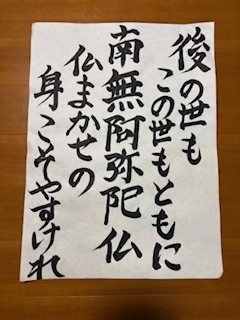 後の世も
この世もともに
南無阿弥陀仏
仏まかせの
身こそやすけれ